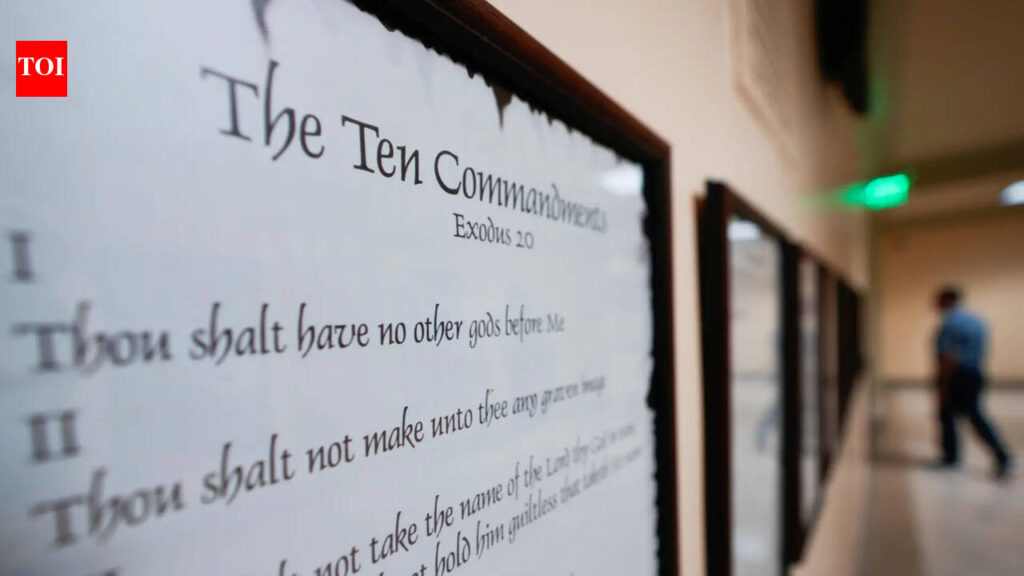 TOI
The Ten Commandments
Exodus 20
I
Thou shalt have no other gods before Me
II
Thou shalt not make unto thee any graven image
not take the name of the Lord thy God in
not hold him guiltless that taketh